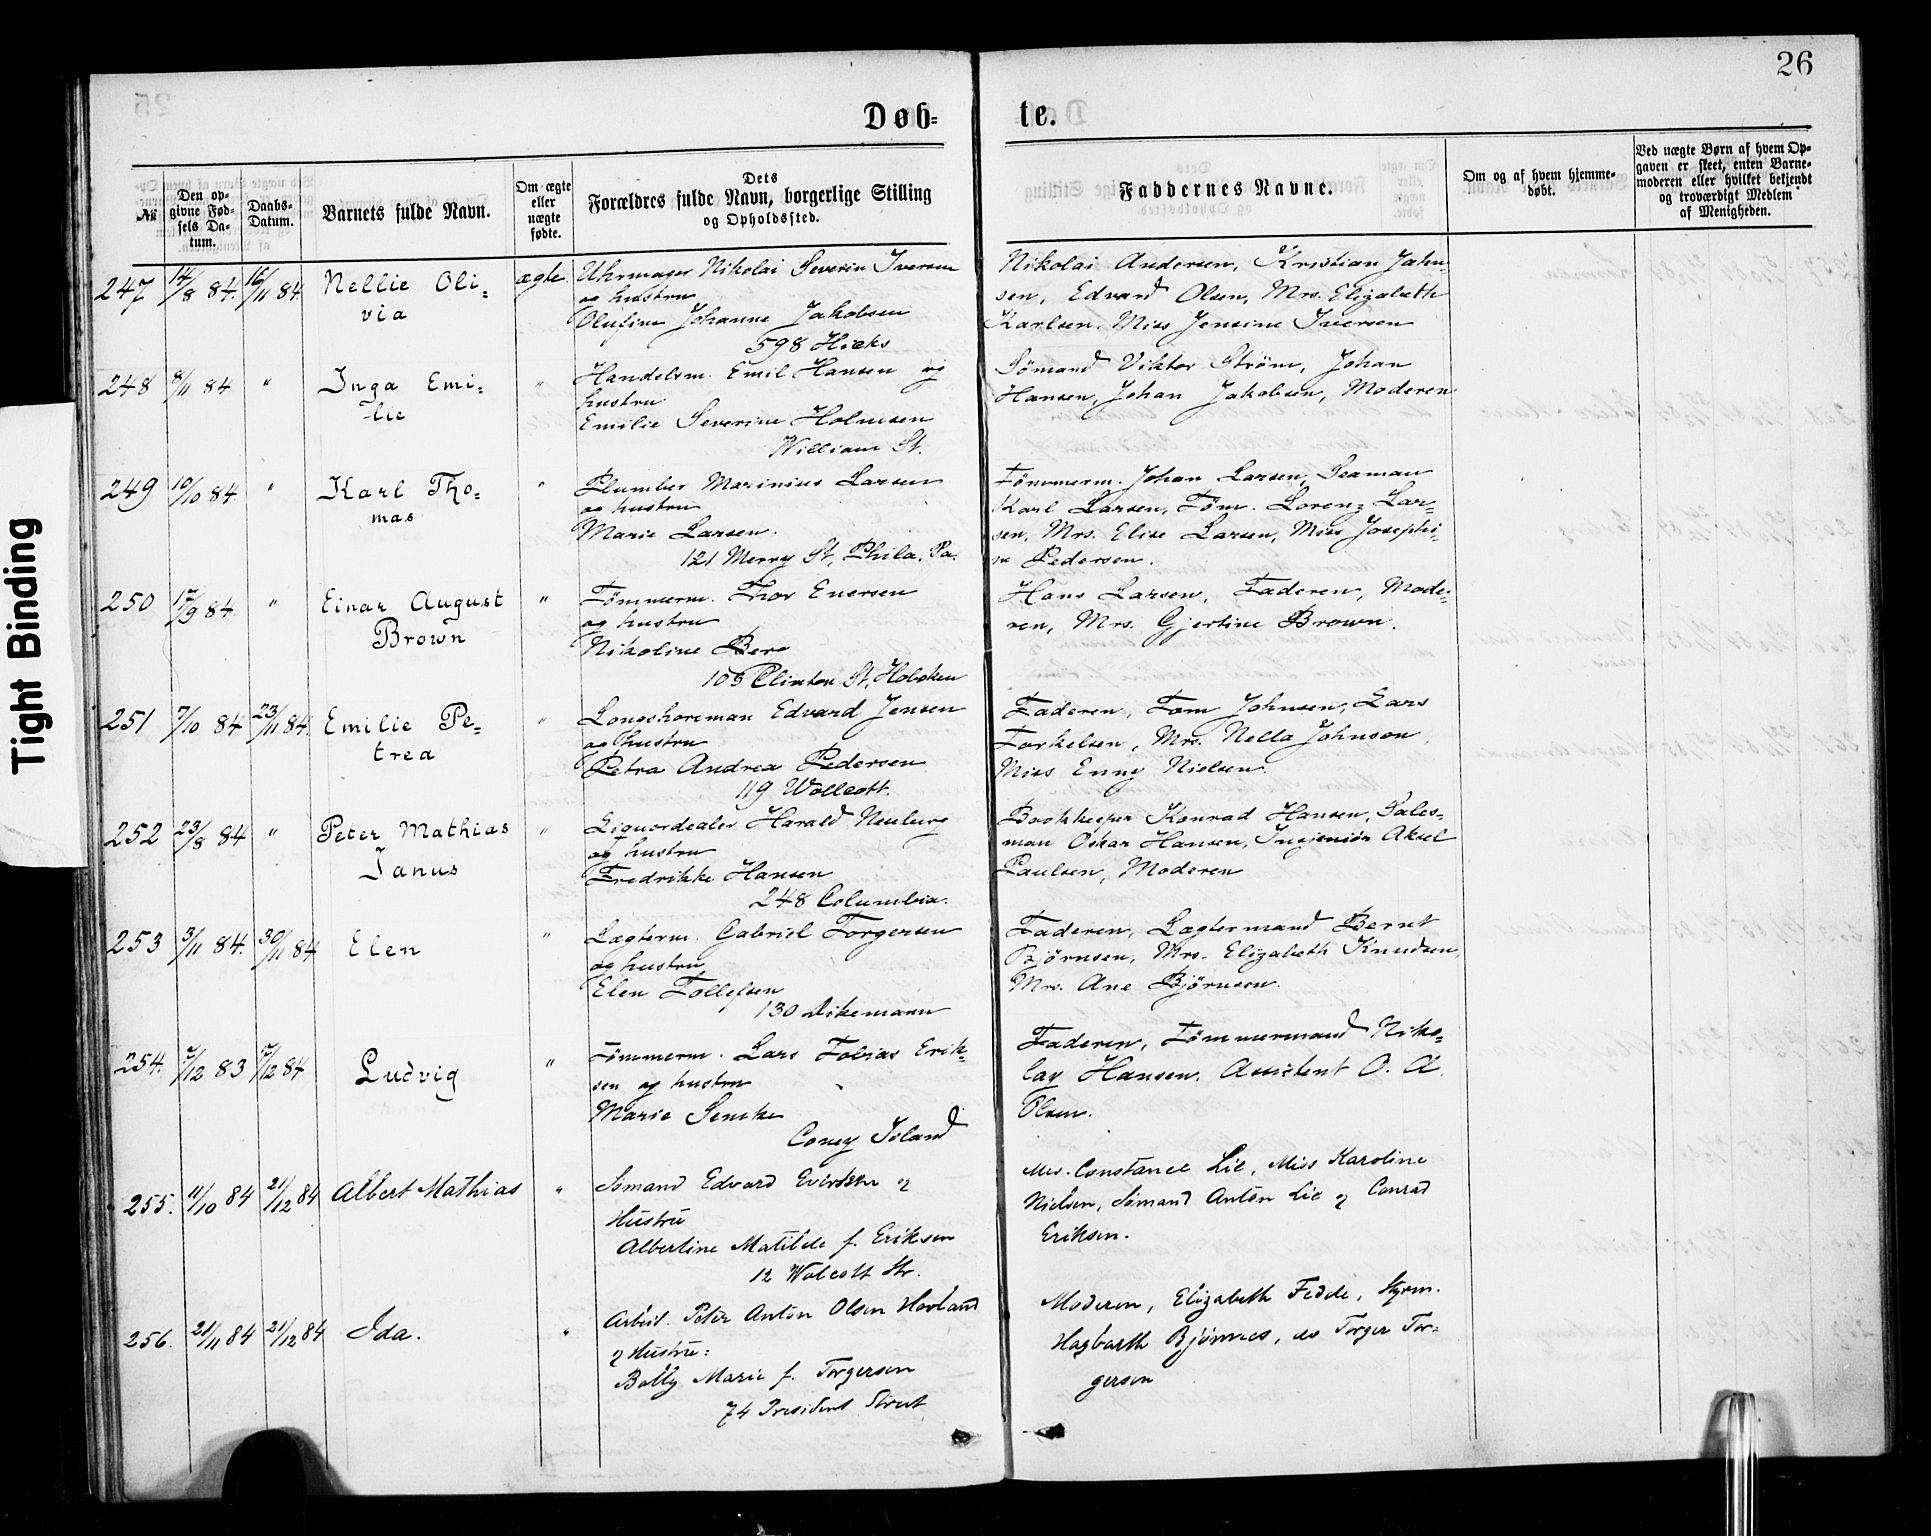 26
Døb=
te.
№
Den op=
givne Fød=
sels Da=
tum.
Daabs=
Datum.
Barnets fulde Navn.
Om ægte
eller
uægte
fødte.
Dets
Forældres fulde Navn, borgerlige Stilling
og Opholdssted.
Faddernes Navne.
Om og af hvem hjemme=
døbt.
Ved uægte Børn af hvem Op=
gaven er skeet, enten Barne=
moderen eller hvilket bekjendt
og troværdigt Medlem
af Menigheden.
247 14/8 84. 16/11 84. Nellie Oli=
via
ægte. Uhrmager Nikolai Severin Iversen
og hustru
Olufine Johanne Jakobsen
598 Hicks
Nikolai Andersen, Kristian Jahn=
sen, Edvard Olsen, Mrs. Elizabeth
Karlsen. Miss Jensine Iversen
248 8/11 84 " Inga Emi=
lie
" Handelsm. Emil Hansen og
hustru
Emilie Severine Holmsen
William St.
Sømand Viktor Strøm, Johan
Hansen, Johan Jakobsen, Moderen
249 10/10 84 " Karl Tho=
mas
" Plumber Marinius Larsen
og hustru
Marie Larsen.
121 Merry St, Phila. Pa.
Tømmerm. Johan Larsen, Seaman
Karl Larsen, Tøm. Lorenz Lar=
sen, Mrs. Elise Larsen, Miss Josephi=
ne Pedersen.
250 17/9 84. " Einar August
Brown
" Tømmerm. Thor Enersen
og hustru
Nikoline Berg
105 Clinton St, Hoboken
Hans Larsen, Faderen, Mode=
ren, Mrs. Gjertine Brown.
251 7/10 84 23/11 84. Emilie Pe=
trea
" Longshoreman Edvard Jensen
og hustru
Petra Andrea Pedersen
119 Wollcott.
Faderen, Tom Johnsen, Lars
Torkelsen, Mrs. Nella Johnson,
Miss Enny Nielsen.
252 23/8 84 " Peter Mathias
Janus
" Liquordealer Harald Neuburg
og hustru
Fredrikke Hansen
248 Columbia.
Bookkeeper Konrad Hansen, Sales=
man Oskar Hansen, Ingeniør Aksel
Paulsen, Moderen
253 3/11 84. 30/11 84 Elen
" Lægterm. Gabriel Torgersen
og hustru
Elen Tollefsen
130 Dikemann
Faderen, Lægtermand Bernt
Bjørnsen, Mrs. Elizabeth Knudsen,
Mrs. Ane Bjørnsen.
254. 7/12 83 7/12 84 Ludvig
" Tømmerm. Lars Tobias Erik=
sen og hustru
Marie Semke
Coney Island
Faderen, Tømmermand Niko=
lay Hansen. Assistent O. A.
Olsen.
255. 11/10 84 21/12 84 Albert Mathias
" Sømand Edvard Evertsen og
Hustru
Albertine Matilde f. Eriksen
12 Wolcott Str.
Mrs. Constance Lie, Miss Karoline
Nielsen, Sømand Anton Lie og Conrad
Eriksen.
256. 21/11 84 21/12 84 Ida.
" Arbeid. Peter Anton Olsen Hovland
og Hustru:
Bolly Marie f. Torgersen
74 President Street
Moderen, Elizabeth Fedde, Styrm.
Hagbarth Bjønnes, do Torger Tor=
gersen
Tight Binding